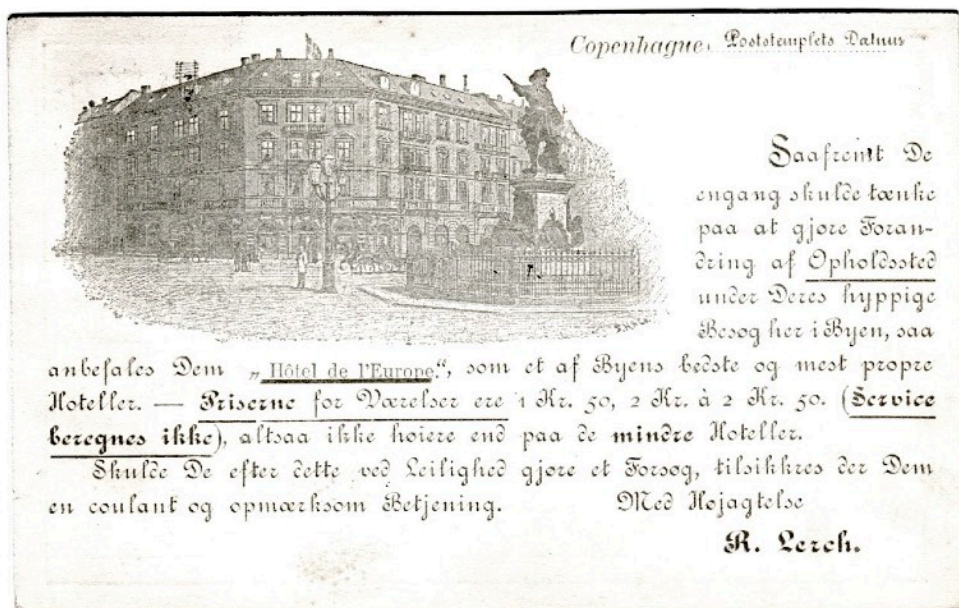 Copenhague, Poststemplets Datum
Saafremt De
engang skulde tænke
paa at gjøre Foran-
dring af Opholdssted
under Deres hyppige
Besøg her i Byen, saa
anbefales Dem „Hôtel de l'Europe“, som et af Byens bedste og mest propre
Hoteller. — Priserne for Værelser ere 1 Kr. 50, 2 Kr. à 2 Kr. 50. (Service
beregnes ikke), altsaa ikke høiere end paa de mindre Hoteller.
Skulde De efter dette ved Leilighed gjøre et Forsøg, tilsikkres der Dem
en coulant og opmærksom Betjening. Med Højagtelse
R. Lerch.